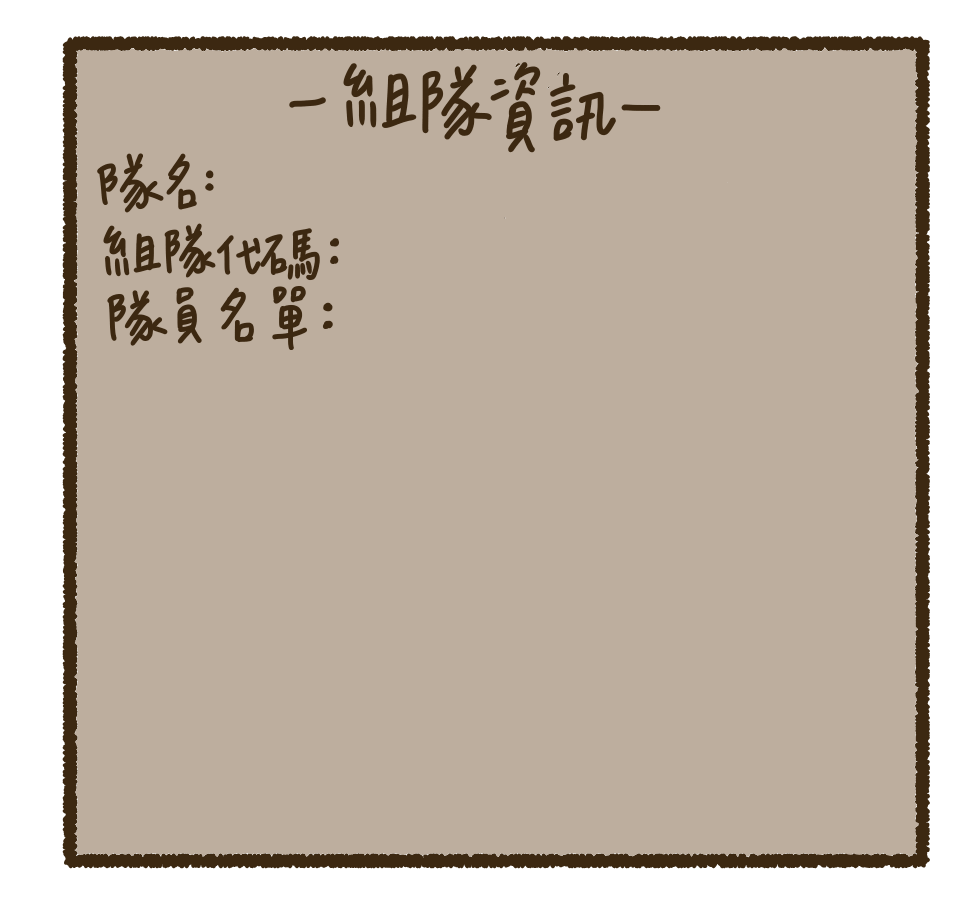 －組隊資訊－
隊名:
組隊代碼:
隊員名單: